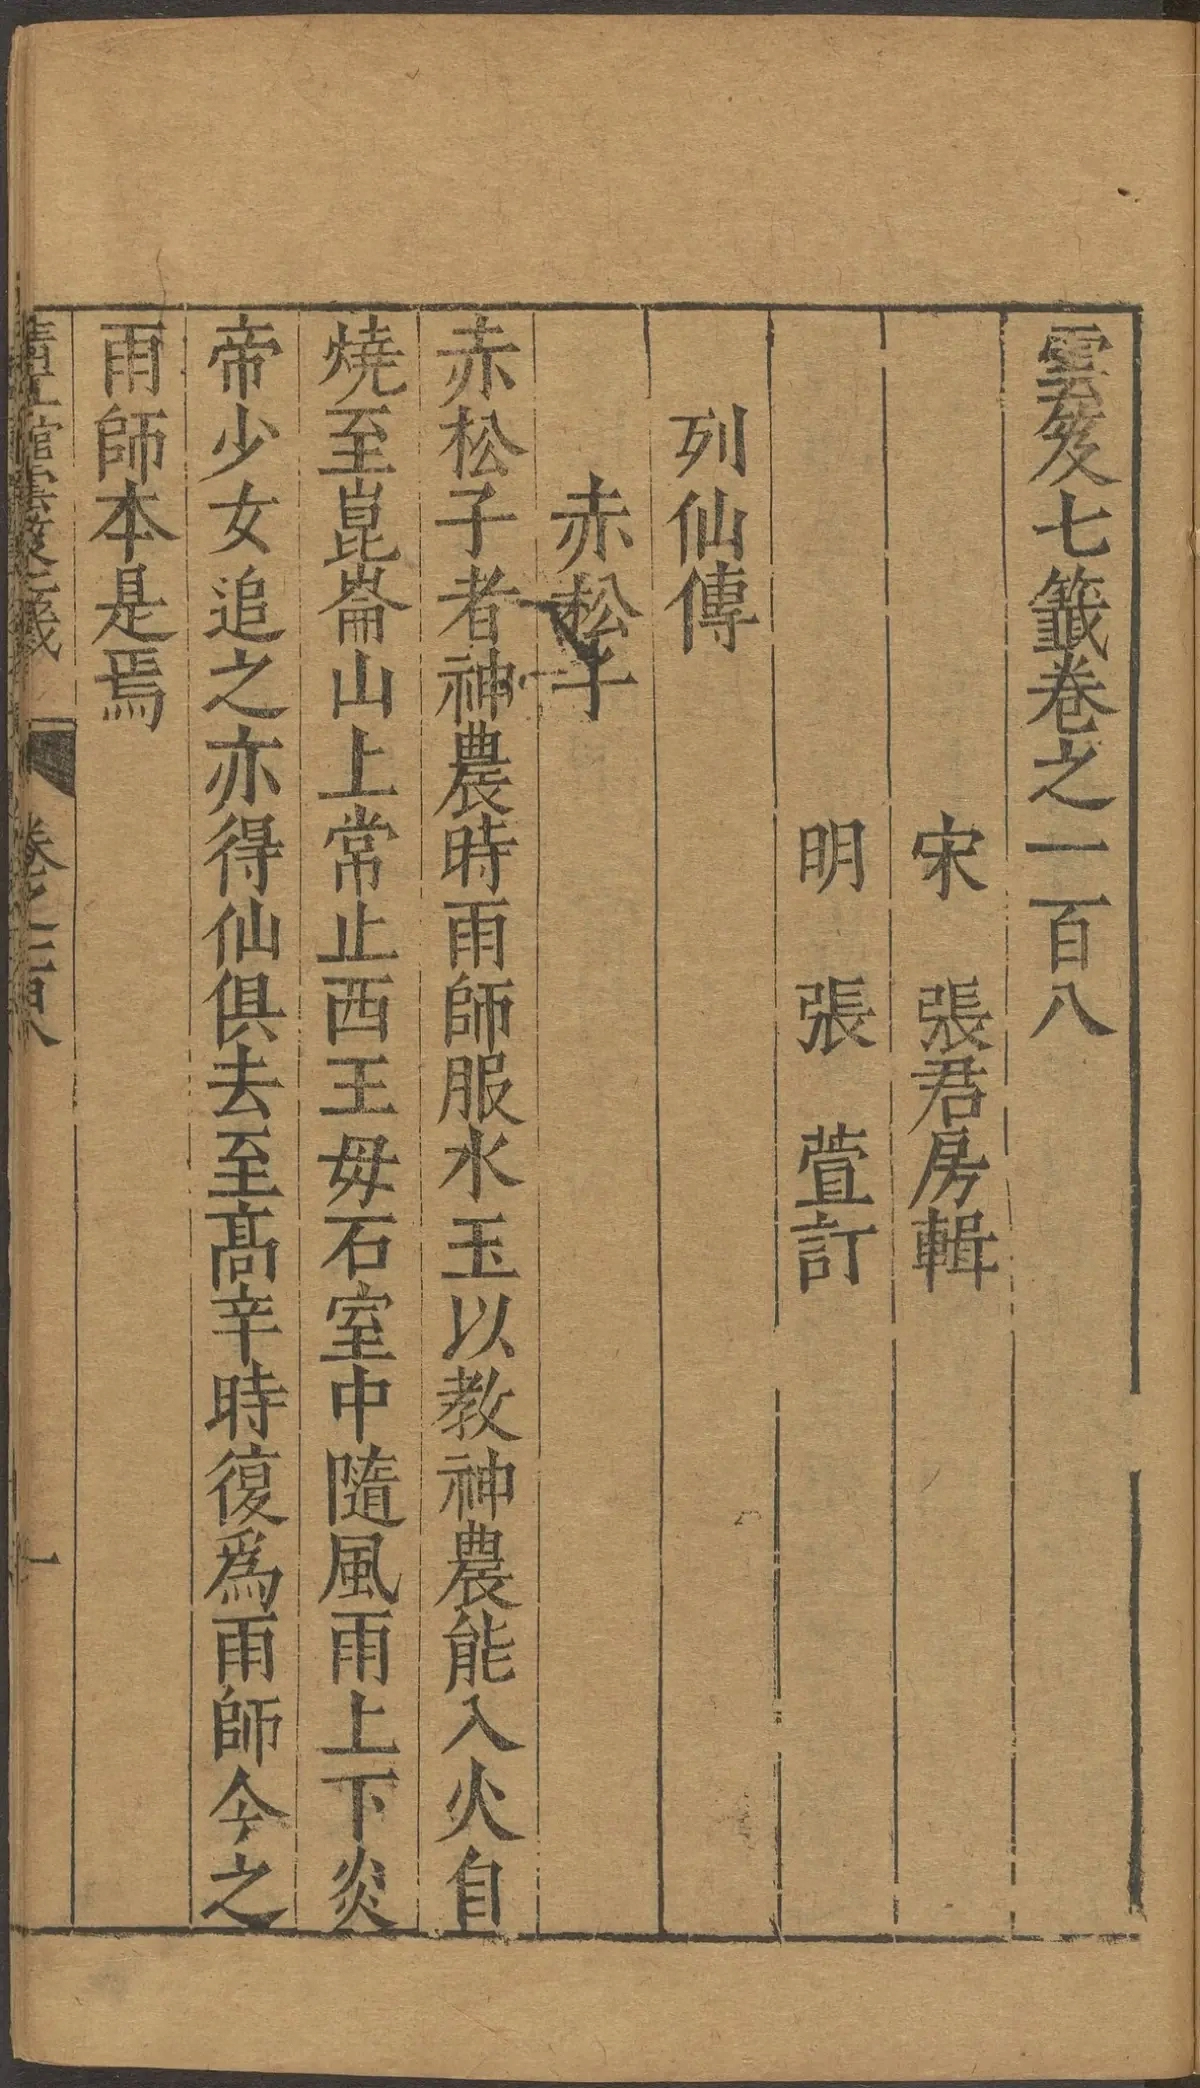 雲笈七籤卷之一百八
宋　張君房輯
明　張　萱訂
列仙傳
赤松子
赤松子者神農時雨師服水玉以教神農能入火自
燒至崑崙山上常止西王母石室中隨風雨上下炎
帝少女追之亦得仙俱去至高辛時復爲雨師今之
雨師本是焉
卷之一百八
一